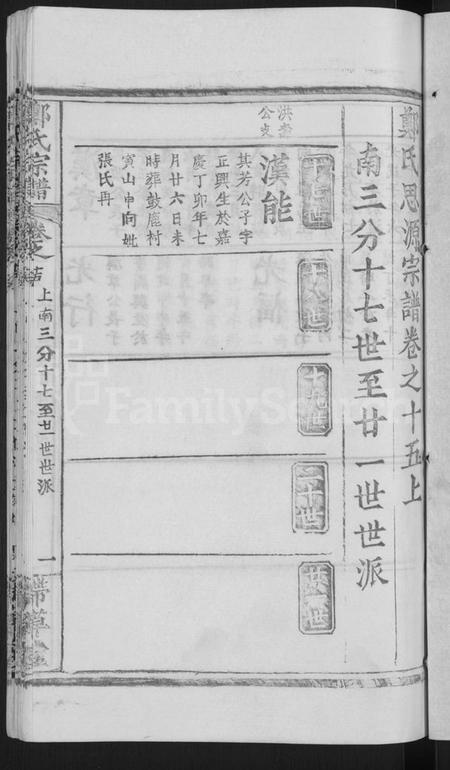 鄭氏思源宗譜卷之十五上
南三分十七世至廿一世世派
十七世
十八世
十九世
二十世
廿一世
洪奎
公支
漢能
其芳公子字
正興生於嘉
慶丁卯年七
月廿六日未
時葬鼓鹿村
寅山申向妣
張氏再
鄭氏宗譜
卷之十五
上南三分十七至廿一世世派
一
帶草堂
FamilySearch